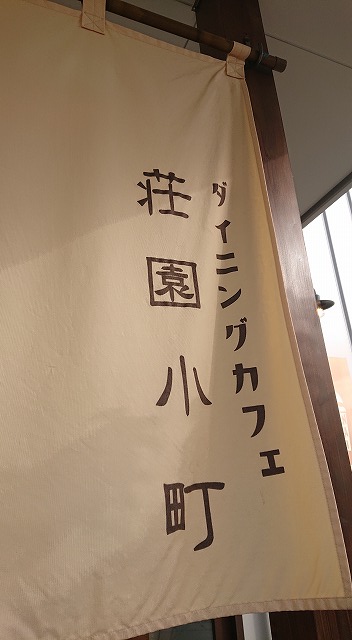 ダイニングカフェ
荘園小町